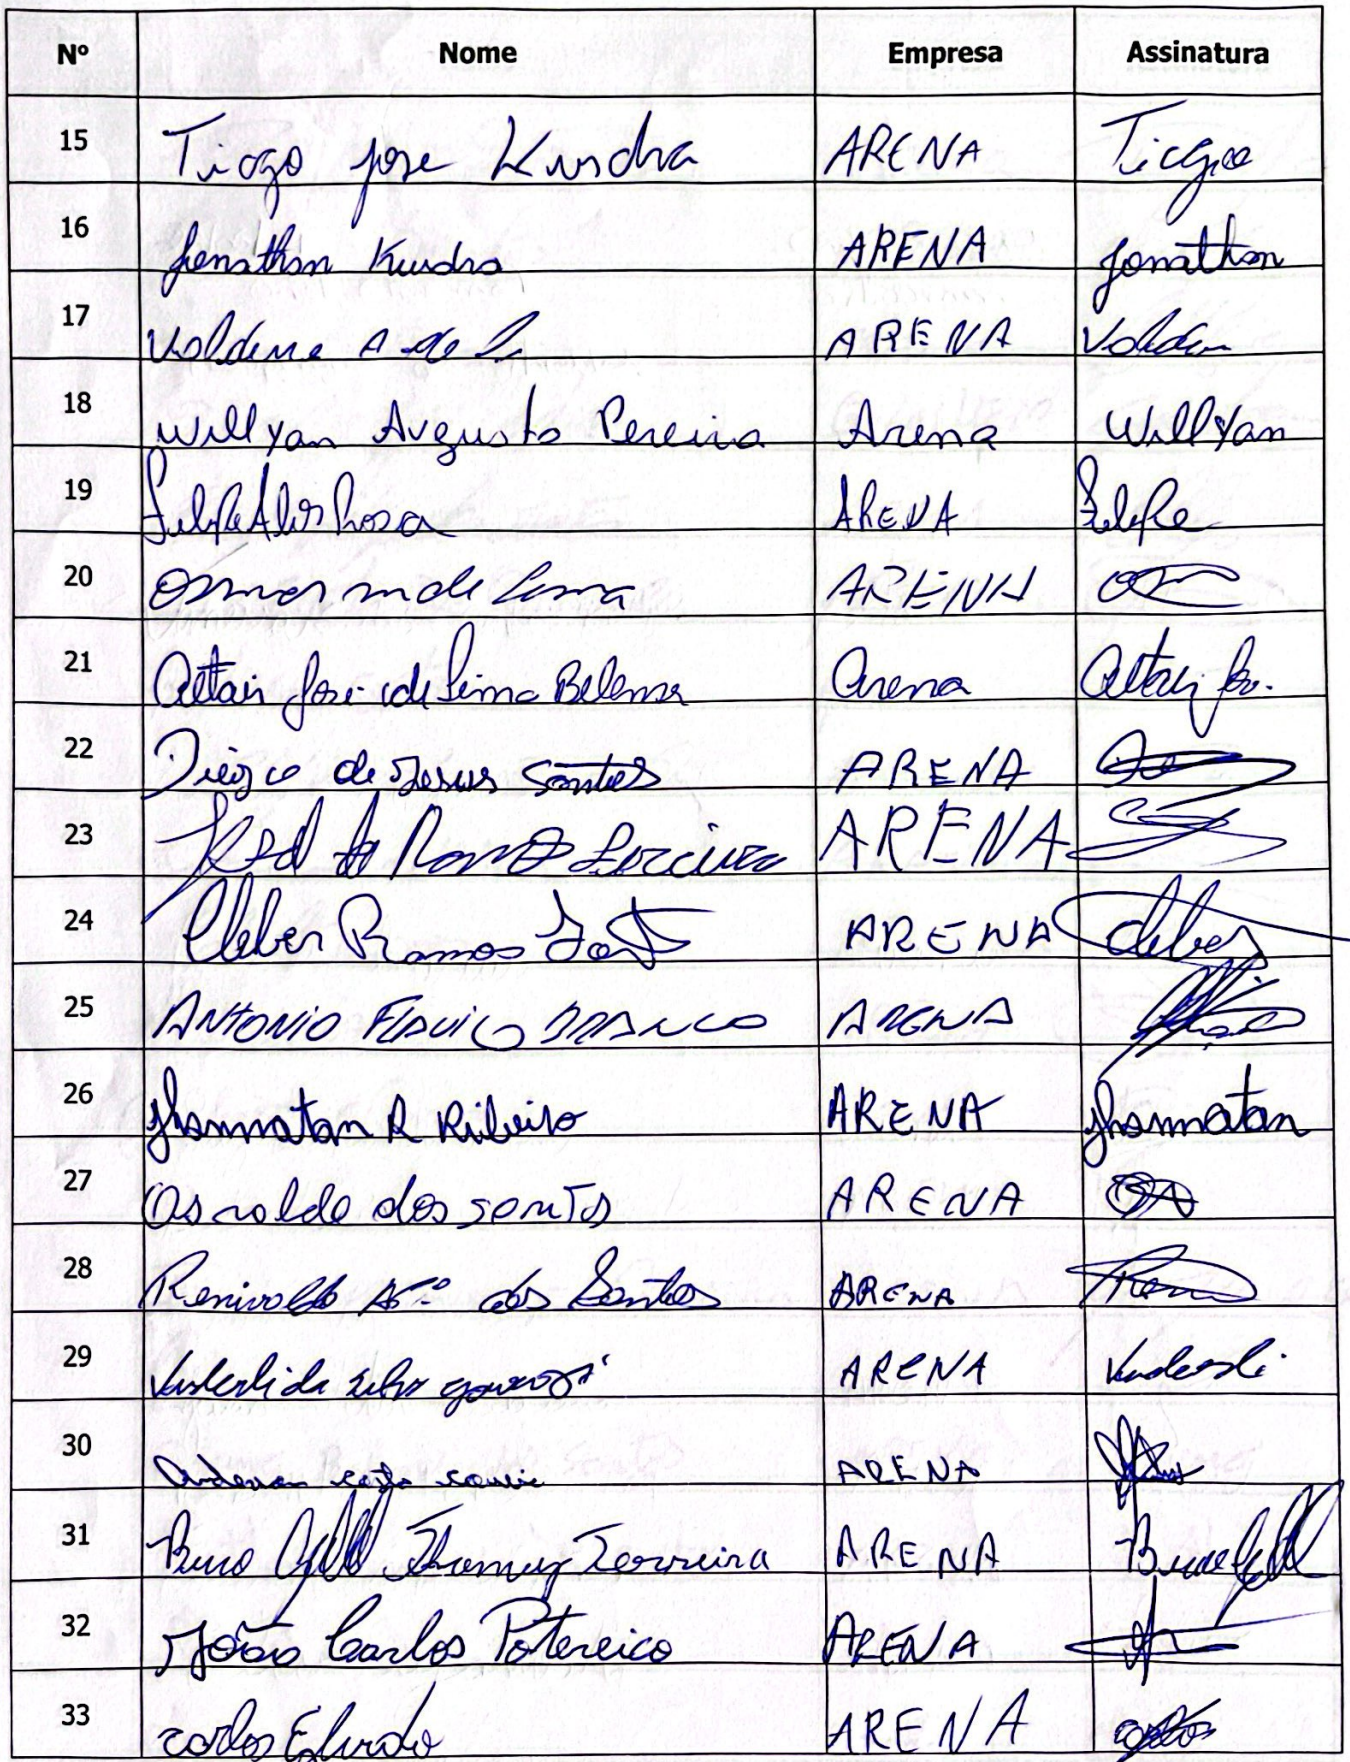 Nº Nome Empresa Assinatura
15 Tiago jose Kundra ARENA Tiago
16 Jonathan Kundra ARENA Jonathan
17 ARENA
18 Willyan Augusto Pereira Arena Willyan
19 Felipe Alves Rosa ARENA Felipe
20 Osmar m de Lima ARENA
21 Altair José de Lima Arena Altair
22 Diego de Jesus Santos ARENA
23 ARENA
24 Cleber Ramos ARENA Cleber
25 ANTONIO FLAVIO BRANCO ARENA
26 Jhonnatan R Ribeiro ARENA Jhonnatan
27 Osvaldo dos santos ARENA
28 Renivaldo dos Santos ARENA
29 da silva ARENA
30 costa ARENA
31 Ferreira ARENA
32 João Carlos Potereico ARENA
33 carlos Eduardo ARENA